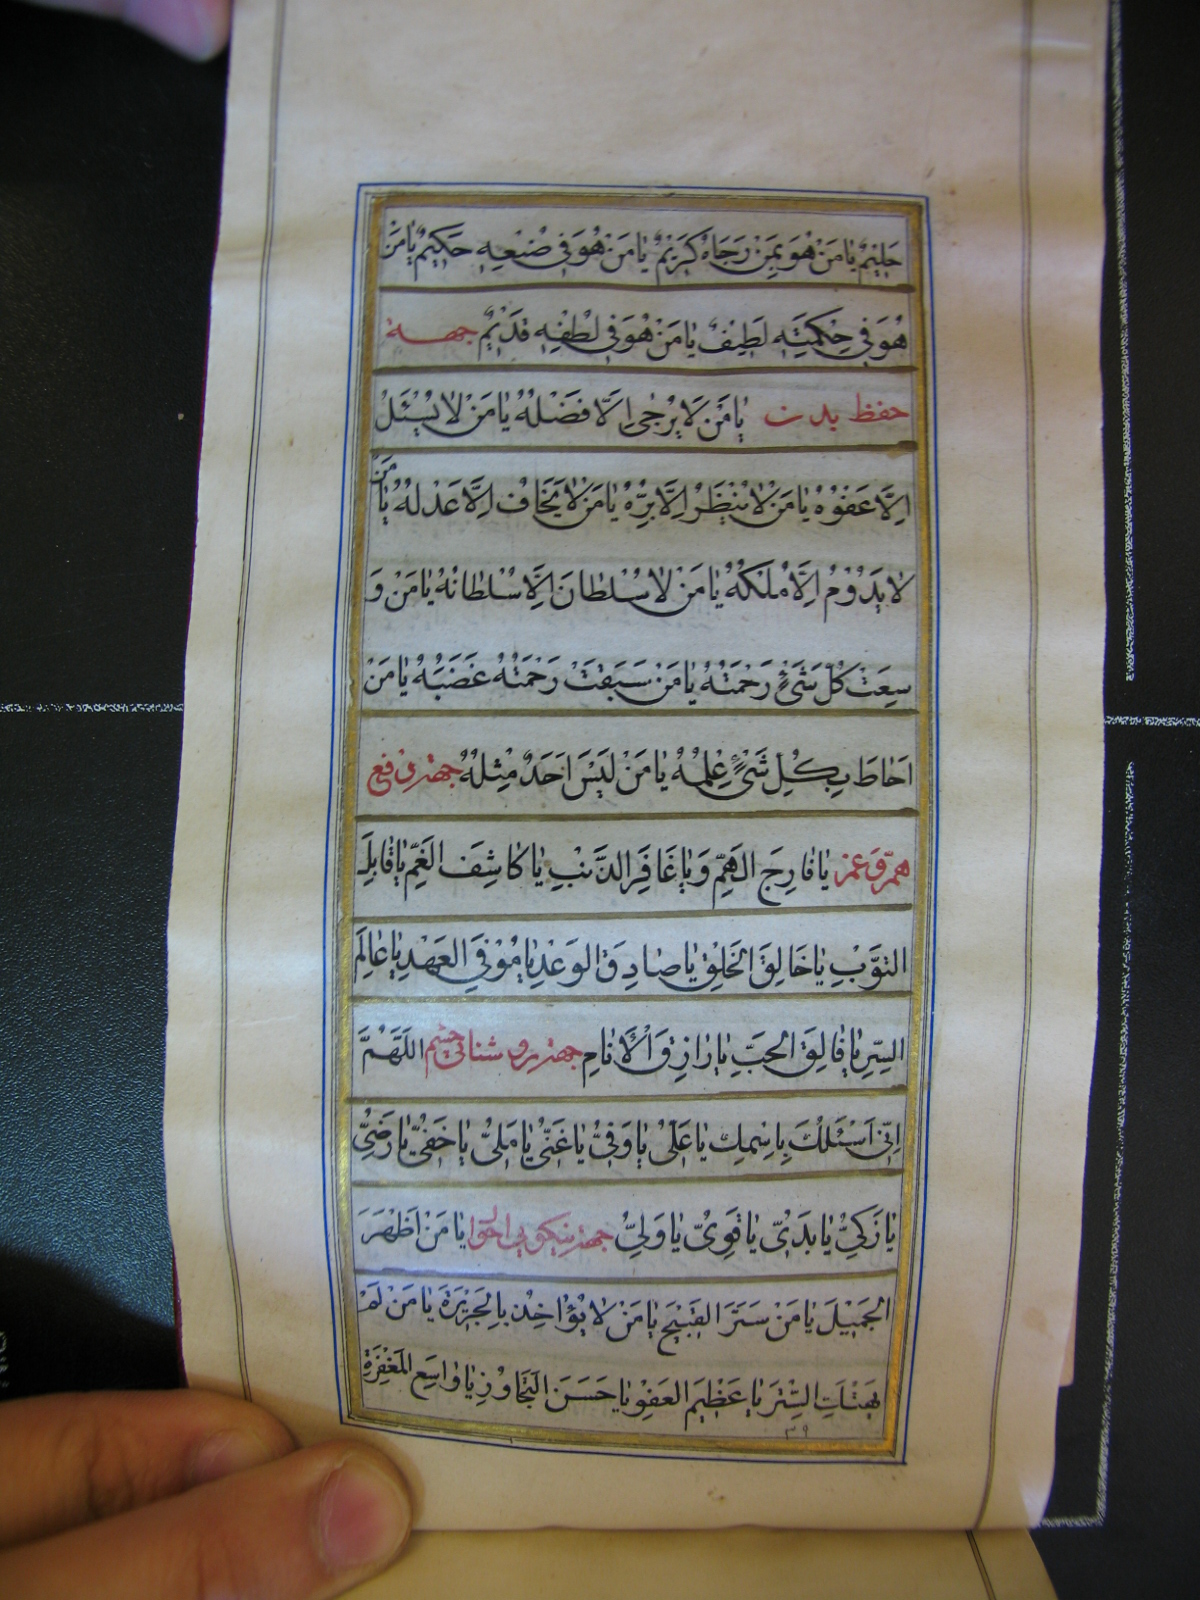 حَلِيمٌ يٰا مَنْ هُوَ بِمَنْ رَجَاهُ كَرِيمٌ يٰا مَنْ هُوَ فِي صُنْعِهِ حَكِيمٌ يٰا مَنْ
هُوَ فِي حِكْمَتِهِ لَطِيفٌ يٰا مَنْ هُوَ فِي لُطْفِهِ قَدِيمٌ جهة
حفظ بدن يٰا مَنْ لاٰ يُرْجٰى اِلاَّ فَضْلُهُ يٰا مَنْ لاٰ يُسْئَلُ
اِلاَّ عَفْوُهُ يٰا مَنْ لاٰ يُنْظَرُ اِلاَّ بِرُّهُ يٰا مَنْ لاٰ يُخَافُ اِلاَّ عَدْلُهُ يٰا مَنْ
لاٰ يَدُوْمُ اِلاَّ مُلْكُهُ يٰا مَنْ لاٰ سُلْطٰانَ اِلاَّ سُلْطٰانُهُ يٰا مَنْ وَ
سِعَتْ كُلَّ شَيْءٍ رَحْمَتُهُ يٰا مَنْ سَبَقَتْ رَحْمَتُهُ غَضَبُهُ يٰا مَنْ
اَحٰاطَ بِكُلِّ شَيْءٍ عِلْمُهُ يٰا مَنْ لَيْسَ اَحَدٌ مِثْلُهُ جهتر فع
همّ و غم يٰا فٰارِجَ الهَمِّ وَ يٰا غَافِرَ الذَّنْبِ يٰا كٰاشِفَ الغَمِّ يٰا قٰابِلَ
التَّوْبِ يٰا خَالِقَ الخَلْقِ يٰا صٰادِقَ الوَعْدِ يٰا مُوْفِيَ العَهْدِ يٰا عٰالِمَ
السِّرِّ يٰا فٰالِقَ الحَبِّ يٰا رٰازِقَ الْاَنٰامِ جهتر روشنائي چشم اَللّٰهُمَّ
اِنِّي اَسْئَلُكَ بِاسْمِكَ يٰا عَلِيُّ يٰا وَفِيُّ يٰا غَنِيُّ يٰا مَلِيُّ يٰا حَفِيُّ يٰا رَضِيُّ
يٰا زَكِيُّ يٰا بَدِيُّ يٰا قَوِيُّ يٰا وَلِيُّ جهتر نيكويي احوا يٰا مَنْ اَظْهَرَ
الجَمِيْلَ يٰا مَنْ سَتَرَ القَبِيْحَ يٰا مَنْ لاٰ يُؤٰاخِذُ بِالْجَرِيْرَةِ يٰا مَنْ لَمْ
يَهْتِكِ السِّتْرَ يٰا عَظِيْمَ العَفْوِ يٰا حَسَنَ التَّجَاوُزِ يٰا وٰاسِعَ المَغْفِرَةِ
٣٩